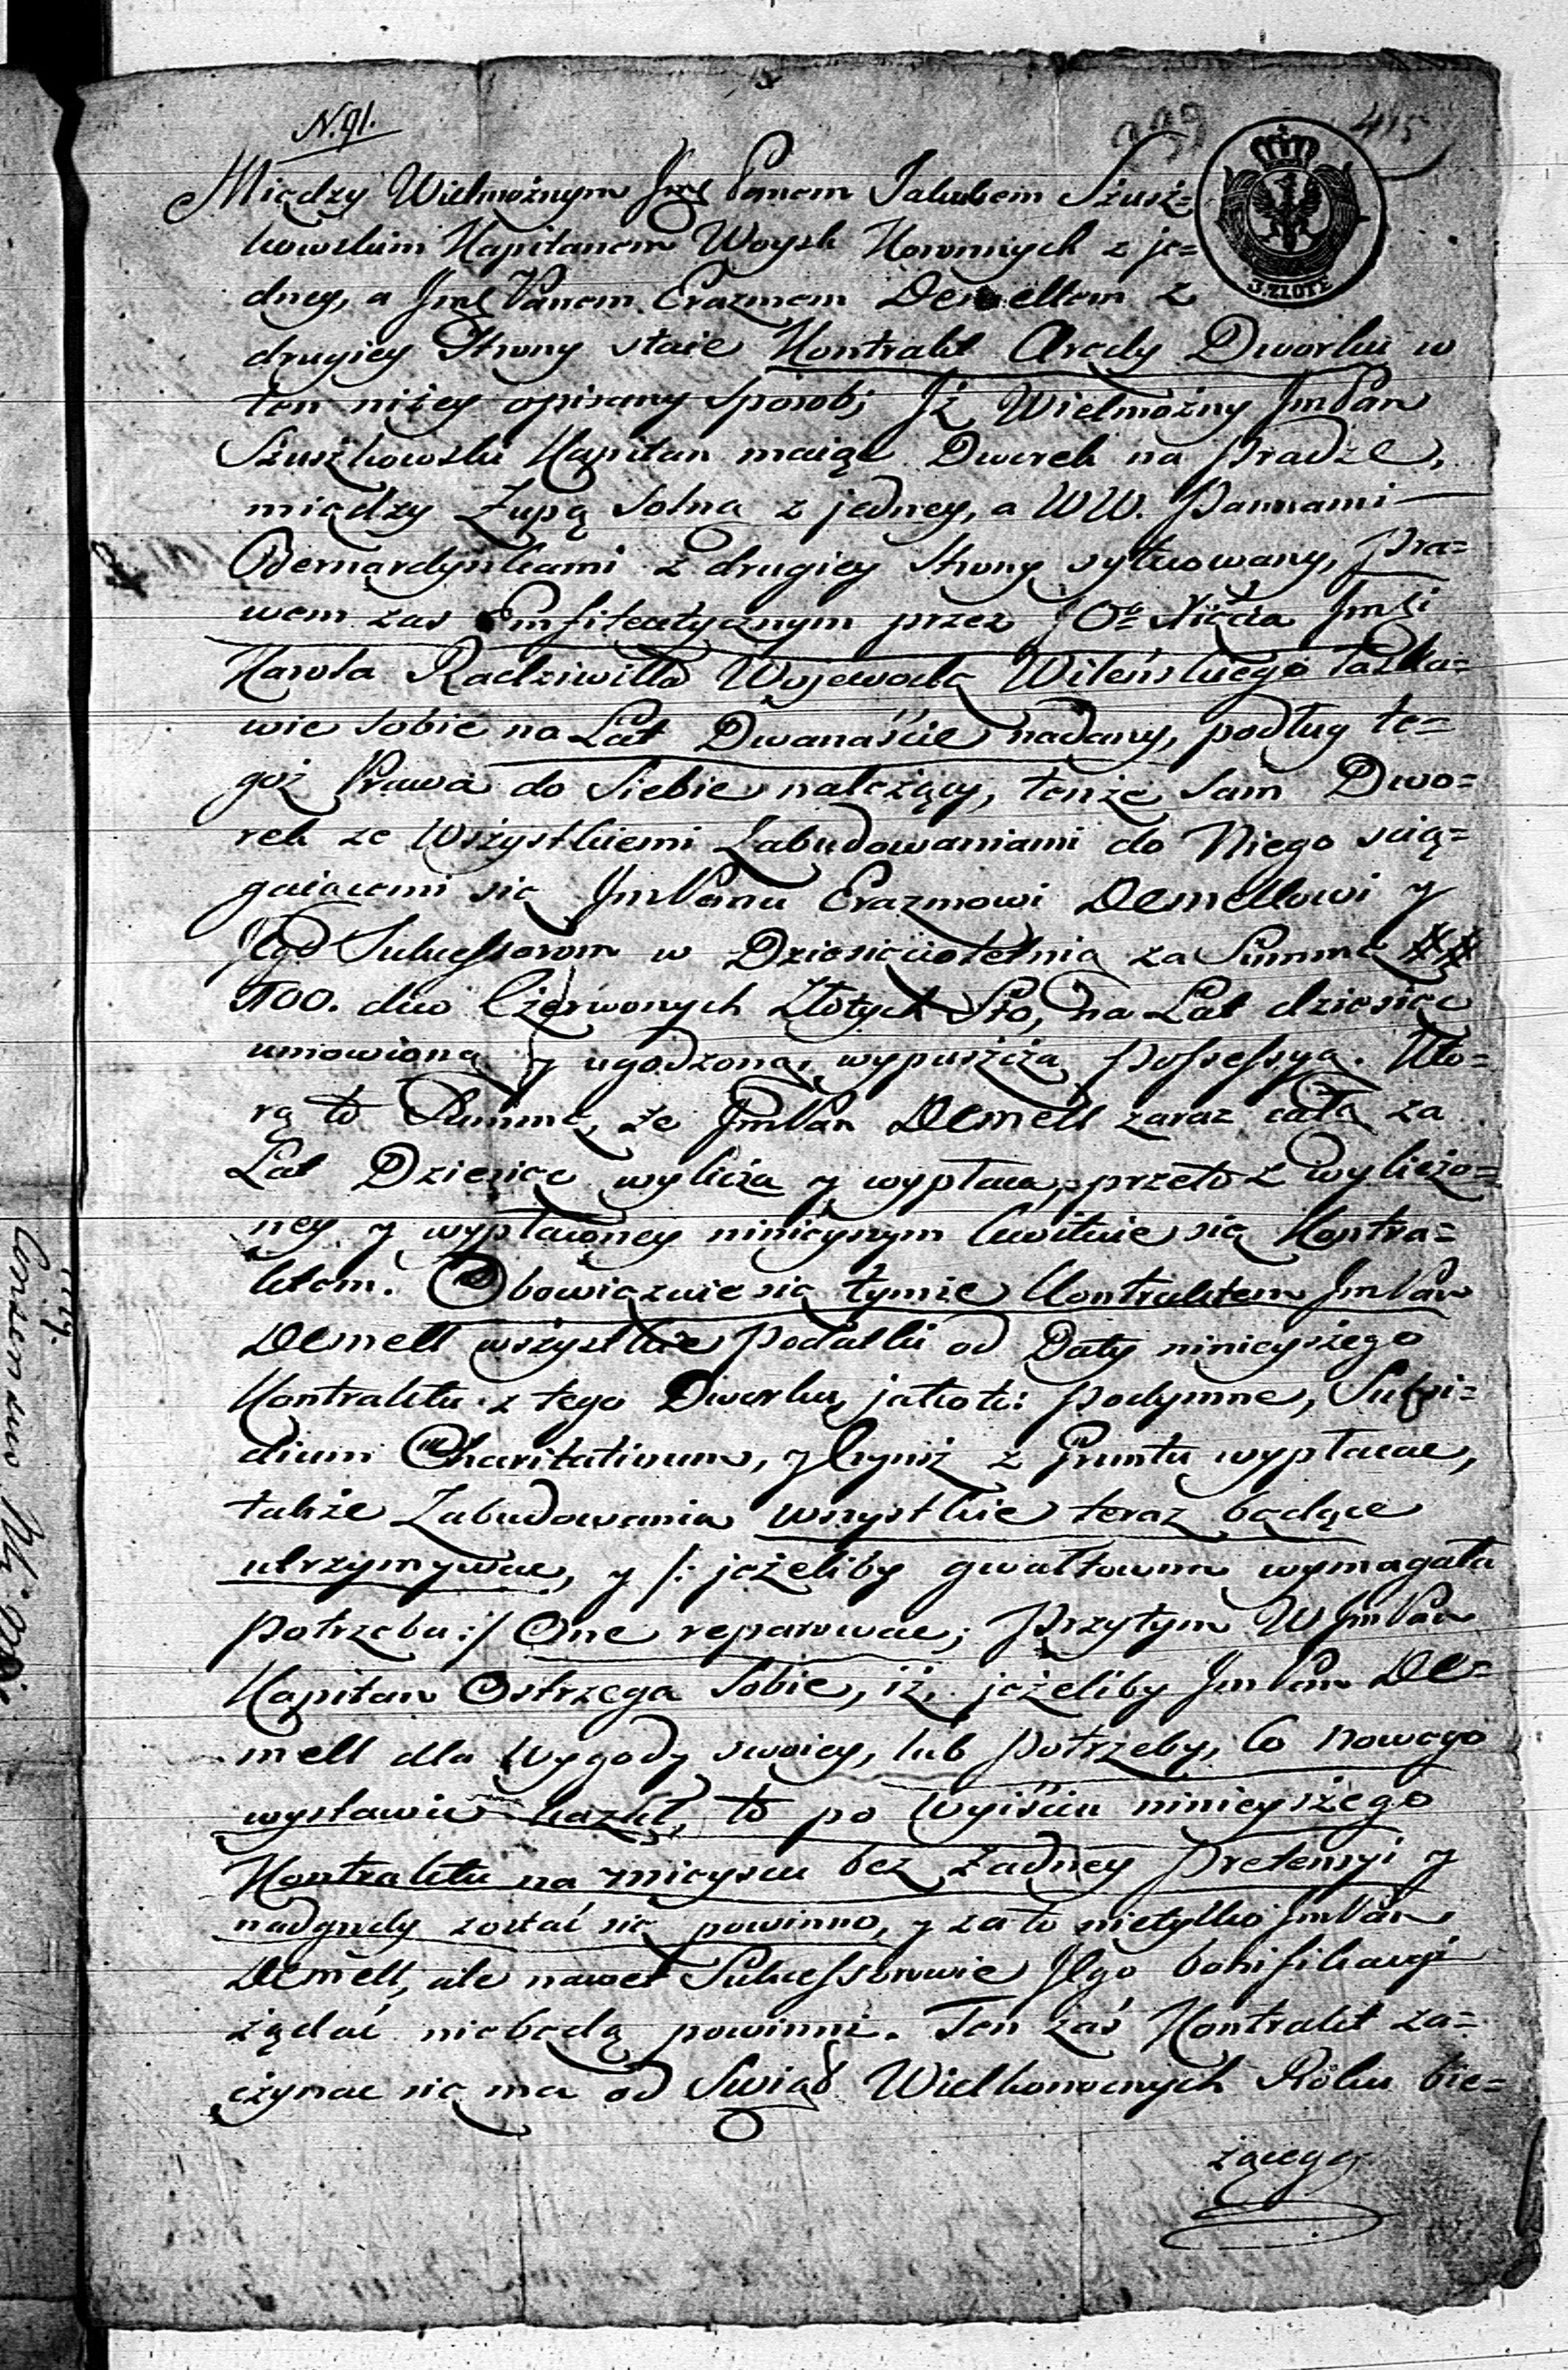 N. 91.
399 415
3. ZŁOTE
Między Wielmożnym Jmć Panem Jakubem Szusz=
kowskim Kapitanem Woysk Koronnych z je=
dney, a Jmć Panem Erazmem Demellem z
drugiey Strony staie Kontrakt Arędy Dworku w
ten niżey opisany sposob; Jż Wielmożny JmPan
Szuszkowski Kapitan maiąc Dworek na Pradze,
między Żupą Solną z jedney, a WW. Pannami
Bernardynkami z drugiey Strony sytuowany, Pra=
wem zas Emfiteutycznym przez JOo Xięcia Jmci
Karola Radziwiłła Wojewodę Wileńskiego łaska=
wie sobie na Lat Dwanaście nadany, podług te=
goż Prawa do Siebie należący, tenże sam Dwo=
rek ze Wszystkiemi Zabudowaniami do Niego scią=
gaiącemi się JmPanu Erazmowi Demellowi y
Jego Sukcessorom w Dziesięcioletnią za Summę ##
100. dico Czerwonych Złotych Sto, na Lat dziesięć
umowioną y ugodzoną, wypuszcza Possessyą. Kto=
rą to Summę, że JmPan Demell zaraz całą za
Lat Dziesięć wylicza y wypłaca, przeto z wyliczo=
ney y wypłaconey ninieyszym kwituie się Kontra=
ktem. Obowięzuie się tymże Kontraktem JmPan
Demell wszystkie Podatki od Daty ninieyszego
Kontraktu z tego Dworku, jakoto: Podymne, Subsi=
dium Charitativum, y Czynsz z Gruntu wypłacac,
także Zabudowania wszystkie teraz będące
utrzymywac, y /: jeżeliby gwałtowna wymagała
Potrzeba :/ One reparowac; Przytym WJmPan
Kapitan Ostrzega Sobie, iż, jeżeliby JmPan De=
mell dla Wygody swoiey, lub Potrzeby, Co nowego
wystawic kazał, to po Wyiściu ninieyszego
Kontraktu na mieyscu bez Żadney Pretensyi y
nadgrody zostać się powinno, y za to nietylko JmPan
Demell, ale nawet Sukcessorowie Jego bonifikacyi
żądać niebędą powinni. Ten zaś Kontrakt za=
czynac się ma od Swiąt Wielkonocnych Roku bie=
żącego